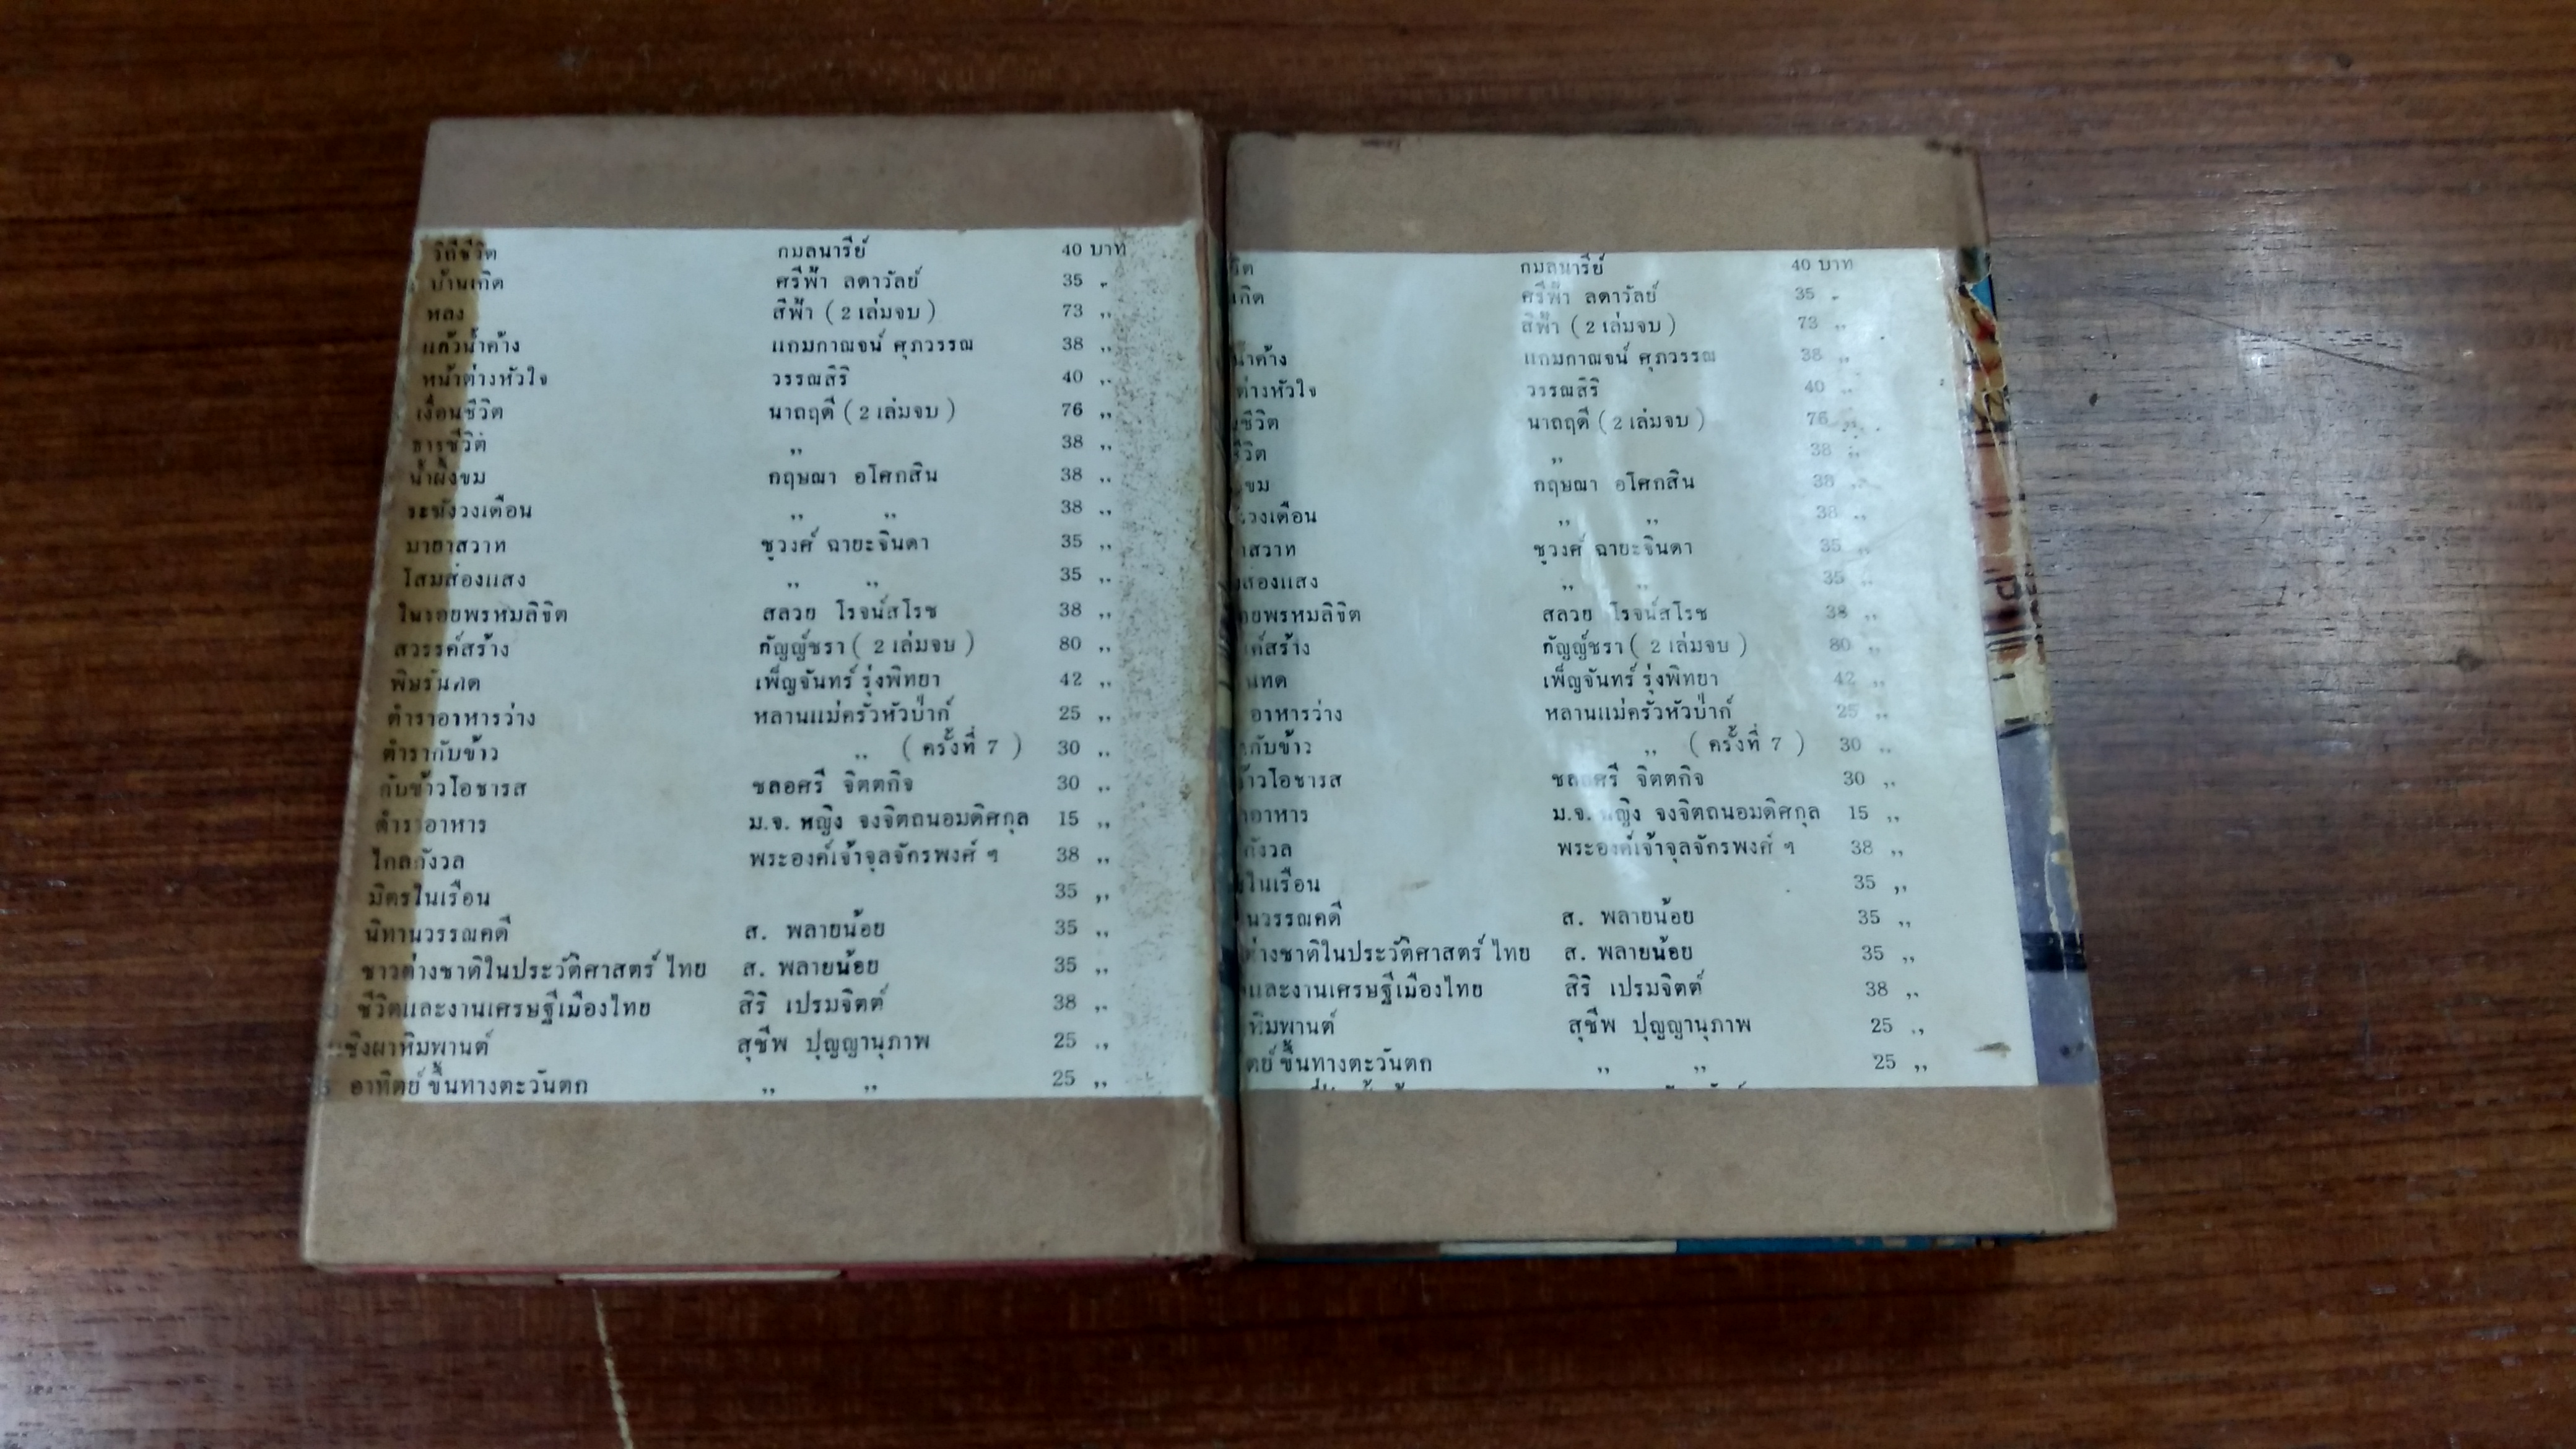 วิถีชีวิต กมลนารีย์ 40 บาท
บ้านเกิด ศรีฟ้า ลดาวัลย์ 35 „
หลง สีฟ้า ( 2 เล่มจบ ) 73 „
แก้วน้ำค้าง แถมกาญจน์ ศุภวรรณ 38 „
หน้าต่างหัวใจ วรรณสิริ 40 „
เงื่อนชีวิต นาถฤดี ( 2 เล่มจบ ) 76 „
ธารชีวิต „ 38 „
น้ำผึ้งขม กฤษณา อโศกสิน 38 „
ระฆังวงเดือน „ „ 38 „
มายาสวาท ชูวงศ์ ฉายะจินดา 35 „
โสมส่องแสง „ „ 35 „
ในรอยพรหมลิขิต สลวย โรจน์สโรช 38 „
สวรรค์สร้าง กัญญ์ชรา ( 2 เล่มจบ ) 80 „
เพ็ญจันทร์ รุ่งพิทยา 42 „
ตำราอาหารว่าง หลานแม่ครัวหัวป่าก์ 25 „
ตำรากับข้าว „ ( ครั้งที่ 7 ) 30 „
กับข้าวโอชารส ชลอศรี จิตตกิจ 30 „
ตำราอาหาร ม.จ. หญิง จงจิตถนอมดิศกุล 15 „
ไกลกังวล พระองค์เจ้าจุลจักรพงศ์ ฯ 38 „
มิตรในเรือน 35 „
นิทานวรรณคดี ส. พลายน้อย 35 „
ชาวต่างชาติในประวัติศาสตร์ ไทย ส. พลายน้อย 35 „
ชีวิตและงานเศรษฐีเมืองไทย สิริ เปรมจิตต์ 38 „
เชิงผาหิมพานต์ สุชีพ ปุญญานุภาพ 25 „
อาทิตย์ ขึ้นทางตะวันตก „ „ 25 „
กมลนารีย์ 40 บาท
เกิด ศรีฟ้า ลดาวัลย์ 35 „
สีฟ้า ( 2 เล่มจบ ) 73 „
น้ำค้าง แถมกาญจน์ ศุภวรรณ 38 „
ต่างหัวใจ วรรณสิริ 40 „
ชีวิต นาถฤดี ( 2 เล่มจบ ) 76 „
ชีวิต „ 38 „
ขม กฤษณา อโศกสิน 38 „
วงเดือน „ „ 38 „
าสวาท ชูวงศ์ ฉายะจินดา 35 „
ส่องแสง „ „ 35 „
อยพรหมลิขิต สลวย โรจน์สโรช 38 „
ค์สร้าง กัญญ์ชรา ( 2 เล่มจบ ) 80 „
เพ็ญจันทร์ รุ่งพิทยา 42 „
อาหารว่าง หลานแม่ครัวหัวป่าก์ 25 „
กับข้าว „ ( ครั้งที่ 7 ) 30 „
ข้าวโอชารส ชลอศรี จิตตกิจ 30 „
าอาหาร ม.จ. หญิง จงจิตถนอมดิศกุล 15 „
กังวล พระองค์เจ้าจุลจักรพงศ์ ฯ 38 „
ในเรือน 35 „
นวรรณคดี ส. พลายน้อย 35 „
ต่างชาติในประวัติศาสตร์ ไทย ส. พลายน้อย 35 „
และงานเศรษฐีเมืองไทย สิริ เปรมจิตต์ 38 „
หิมพานต์ สุชีพ ปุญญานุภาพ 25 „
ตย์ ขึ้นทางตะวันตก „ „ 25 „